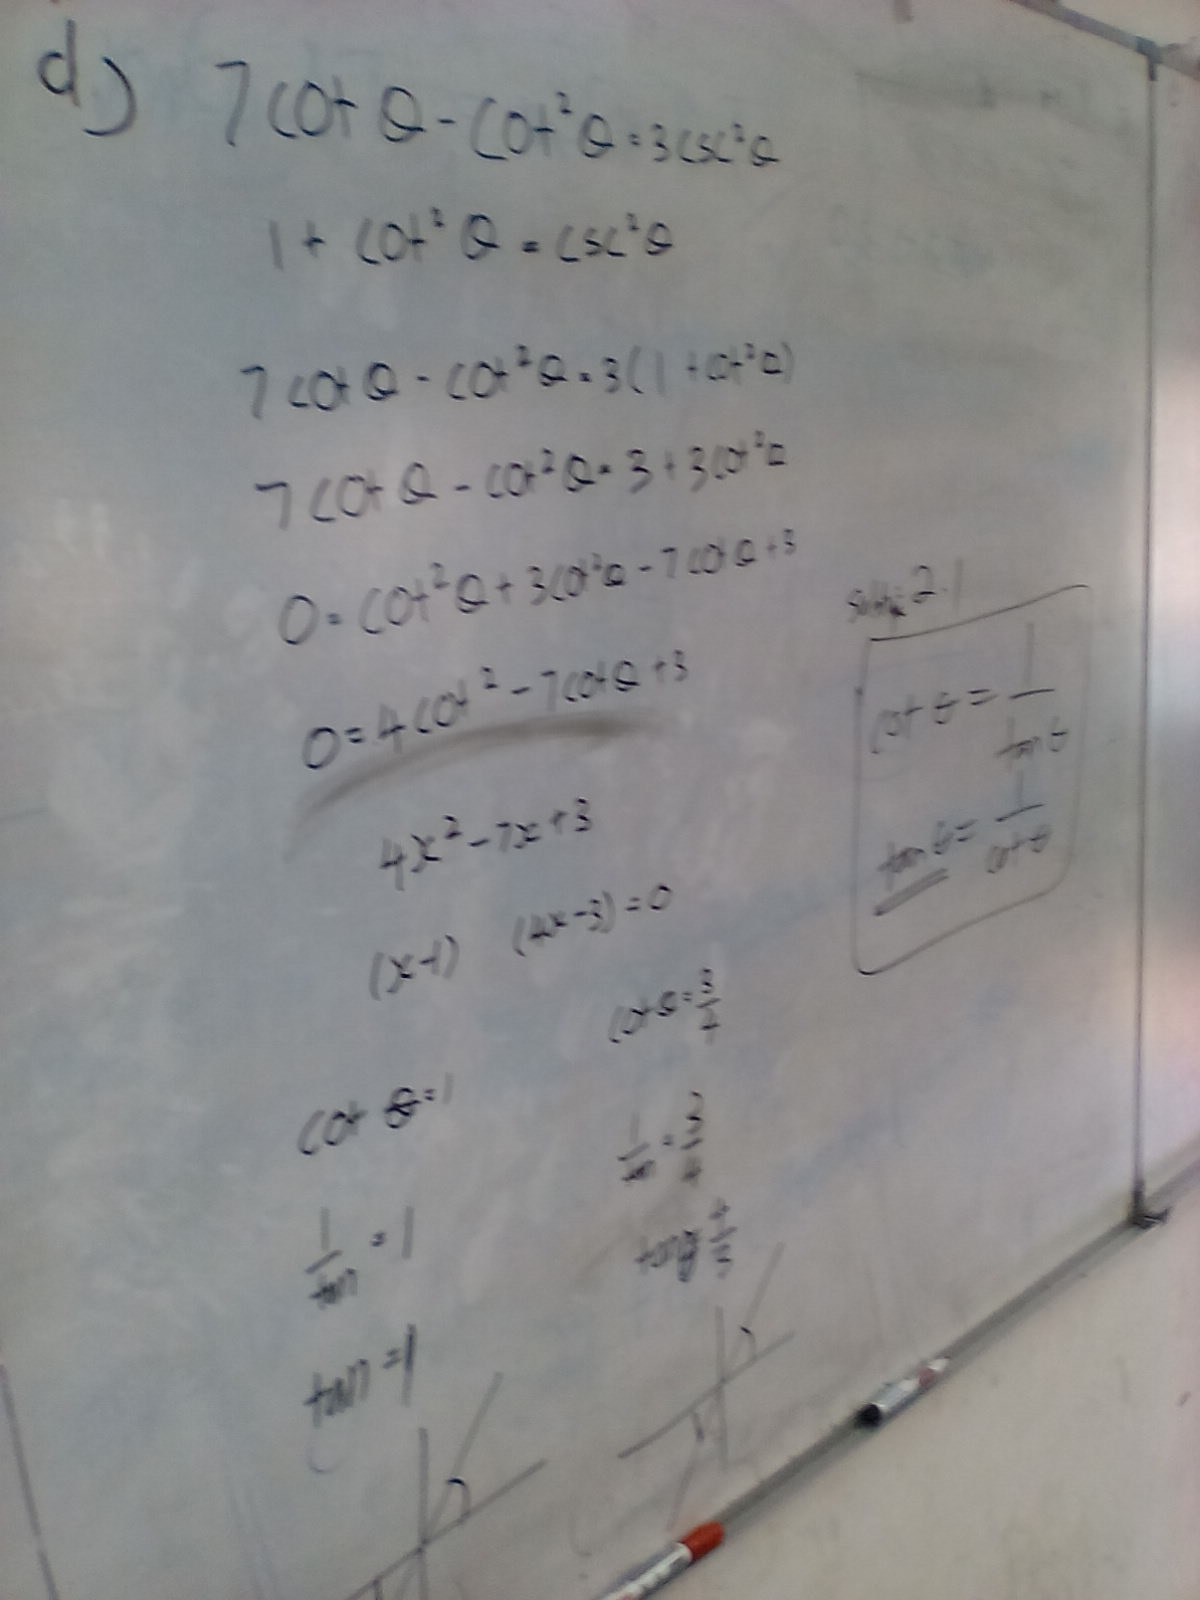 d) 7 cot θ - cot² θ = 3 csc² θ
1 + cot² θ = csc² θ
7 cot θ - cot² θ = 3(1 + cot² θ)
7 cot θ - cot² θ = 3 + 3 cot² θ
0 = cot² θ + 3 cot² θ - 7 cot θ + 3
0 = 4 cot² - 7 cot θ + 3
4x² - 7x + 3
(x-1) (4x-3) = 0
cot θ = 1
1/tan = 1
tan = 1
cot θ = 3/4
1/tan = 3/4
tan θ = 4/3
2.1
cot θ = 1/tan θ
tan θ = 1/cot θ